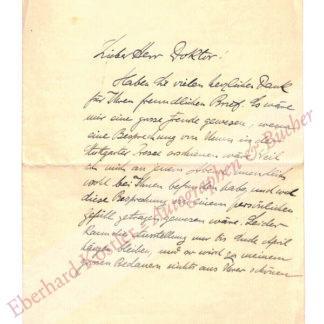 Lieber Herr Doktor!
Haben Sie vielen herzlichen Dank
für Ihren freundlichen Brief. Es wäre
mir eine grosse Freude gewesen, wenn
eine Besprechung von Ihnen in der
Stuttgarter Presse erschienen wäre, weil
ich mich an jenem
wohl bei Ihnen befunden habe, und weil
diese Besprechung von einem persönlichen
Gefühl getragen gewesen wäre. Leider
kann die Ausstellung nur bis Ende April
hängen bleiben, und so wird zu meinem
Bedauern nichts aus Ihrer schönen
Eberhard Köstler - Autographen & Bücher